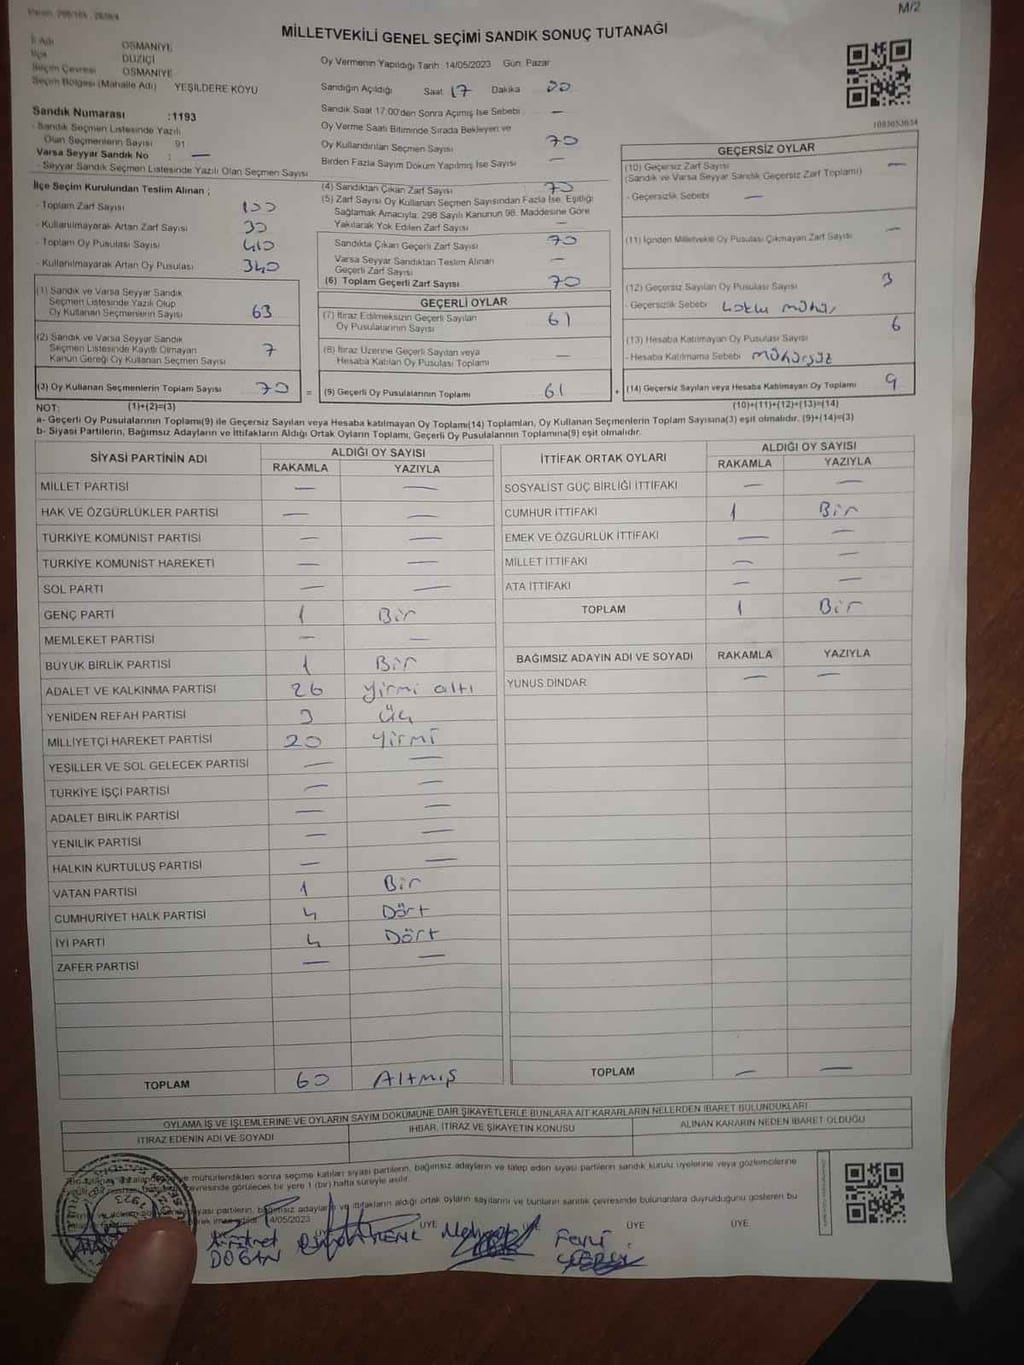 M/2
MİLLETVEKİLİ GENEL SEÇİMİ SANDIK SONUÇ TUTANAĞI
İl Adı OSMANİYE
İlçe DÜZİÇİ
Seçim Çevresi OSMANİYE
Seçim Bölgesi (Mahalle Adı) YEŞİLDERE KÖYÜ
Sandık Numarası :1193
- Sandık Seçmen Listesinde Yazılı
Olan Seçmenlerin Sayısı 91
Varsa Seyyar Sandık No : —
- Seyyar Sandık Seçmen Listesinde Yazılı Olan Seçmen Sayısı
Oy Vermenin Yapıldığı Tarih: 14/05/2023 Gün: Pazar
Sandığın Açıldığı Saat 17 Dakika 00
Sandık Saat 17:00'den Sonra Açılmış İse Sebebi —
Oy Verme Saati Bitiminde Sırada Bekleyen ve
Oy Kullandırılan Seçmen Sayısı 70
Birden Fazla Sayım Döküm Yapılmış İse Sayısı —
1085053654
İlçe Seçim Kurulundan Teslim Alınan ;
- Toplam Zarf Sayısı 100
- Kullanılmayarak Artan Zarf Sayısı 30
- Toplam Oy Pusulası Sayısı 410
- Kullanılmayarak Artan Oy Pusulası 340
(1) Sandık ve Varsa Seyyar Sandık
Seçmen Listesinde Yazılı Olup
Oy Kullanan Seçmenlerin Sayısı 63
(2) Sandık ve Varsa Seyyar Sandık
Seçmen Listesinde Kayıtlı Olmayan
Kanun Gereği Oy Kullanan Seçmen Sayısı 7
(3) Oy Kullanan Seçmenlerin Toplam Sayısı 70 =
(4) Sandıktan Çıkan Zarf Sayısı 70
(5) Zarf Sayısı Oy Kullanan Seçmen Sayısından Fazla İse, Eşitliği
Sağlamak Amacıyla; 298 Sayılı Kanunun 98. Maddesine Göre
Yakılarak Yok Edilen Zarf Sayısı —
Sandıkta Çıkan Geçerli Zarf Sayısı 70
Varsa Seyyar Sandıktan Teslim Alınan
Geçerli Zarf Sayısı —
(6) Toplam Geçerli Zarf Sayısı 70
GEÇERLİ OYLAR
(7) İtiraz Edilmeksizin Geçerli Sayılan
Oy Pusulalarının Sayısı 61
(8) İtiraz Üzerine Geçerli Sayılan veya
Hesaba Katılan Oy Pusulası Toplamı —
(9) Geçerli Oy Pusulalarının Toplamı 61 +
GEÇERSİZ OYLAR
(10) Geçersiz Zarf Sayısı —
(Sandık ve Varsa Seyyar Sandık Geçersiz Zarf Toplamı)
- Geçersizlik Sebebi —
(11) İçinden Milletvekili Oy Pusulası Çıkmayan Zarf Sayısı —
(12) Geçersiz Sayılan Oy Pusulası Sayısı 3
- Geçersizlik Sebebi mühür
(13) Hesaba Katılmayan Oy Pusulası Sayısı 6
- Hesaba Katılmama Sebebi mühürsüz
(14) Geçersiz Sayılan veya Hesaba Katılmayan Oy Toplamı 9
NOT: (1)+(2)=(3) (10)+(11)+(12)+(13)=(14)
a- Geçerli Oy Pusulalarının Toplamı(9) ile Geçersiz Sayılan veya Hesaba katılmayan Oy Toplam(14) Toplamları, Oy Kullanan Seçmenlerin Toplam Sayısına(3) eşit olmalıdır. (9)+(14)=(3)
b- Siyasi Partilerin, Bağımsız Adayların ve İttifakların Aldığı Ortak Oyların Toplamı, Geçerli Oy Pusulalarının Toplamına(9) eşit olmalıdır.
SİYASİ PARTİNİN ADI ALDIĞI OY SAYISI
RAKAMLA YAZIYLA
MİLLET PARTİSİ — —
HAK VE ÖZGÜRLÜKLER PARTİSİ — —
TÜRKİYE KOMÜNİST PARTİSİ — —
TÜRKİYE KOMÜNİST HAREKETİ — —
SOL PARTİ — —
GENÇ PARTİ 1 Bir
MEMLEKET PARTİSİ — —
BÜYÜK BİRLİK PARTİSİ 1 Bir
ADALET VE KALKINMA PARTİSİ 26 Yirmi altı
YENİDEN REFAH PARTİSİ 3 Üç
MİLLİYETÇİ HAREKET PARTİSİ 20 Yirmi
YEŞİLLER VE SOL GELECEK PARTİSİ — —
TÜRKİYE İŞÇİ PARTİSİ — —
ADALET BİRLİK PARTİSİ — —
YENİLİK PARTİSİ — —
HALKIN KURTULUŞ PARTİSİ — —
VATAN PARTİSİ 1 Bir
CUMHURİYET HALK PARTİSİ 4 Dört
İYİ PARTİ 4 Dört
ZAFER PARTİSİ — —
TOPLAM 60 Altmış
İTTİFAK ORTAK OYLARI ALDIĞI OY SAYISI
RAKAMLA YAZIYLA
SOSYALİST GÜÇ BİRLİĞİ İTTİFAKI — —
CUMHUR İTTİFAKI 1 Bir
EMEK VE ÖZGÜRLÜK İTTİFAKI — —
MİLLET İTTİFAKI — —
ATA İTTİFAKI — —
TOPLAM 1 Bir
BAĞIMSIZ ADAYIN ADI VE SOYADI RAKAMLA YAZIYLA
YUNUS DİNDAR — —
TOPLAM — —
OYLAMA İŞ VE İŞLEMLERİNE VE OYLARIN SAYIM DÖKÜMÜNE DAİR ŞİKAYETLERLE BUNLARA AİT KARARLARIN NELERDEN İBARET BULUNDUKLARI
İTİRAZ EDENİN ADI VE SOYADI İHBAR, İTİRAZ VE ŞİKAYETİN KONUSU ALINAN KARARIN NEDEN İBARET OLDUĞU
mühürlendikten sonra seçime katılan siyasi partilerin, bağımsız adayların ve talep eden siyasi partilerin sandık kurulu üyelerine veya gözlemcilerine
çevresinde görülecek bir yere 1 (bir) hafta süreyle asılır.
siyasi partilerin, bağımsız adayların ve ittifakların aldığı ortak oyların sayılarını ve bunların sandık çevresinde bulunanlara duyurulduğunu gösteren bu
14/05/2023
ÜYE ÜYE ÜYE
DOĞAN